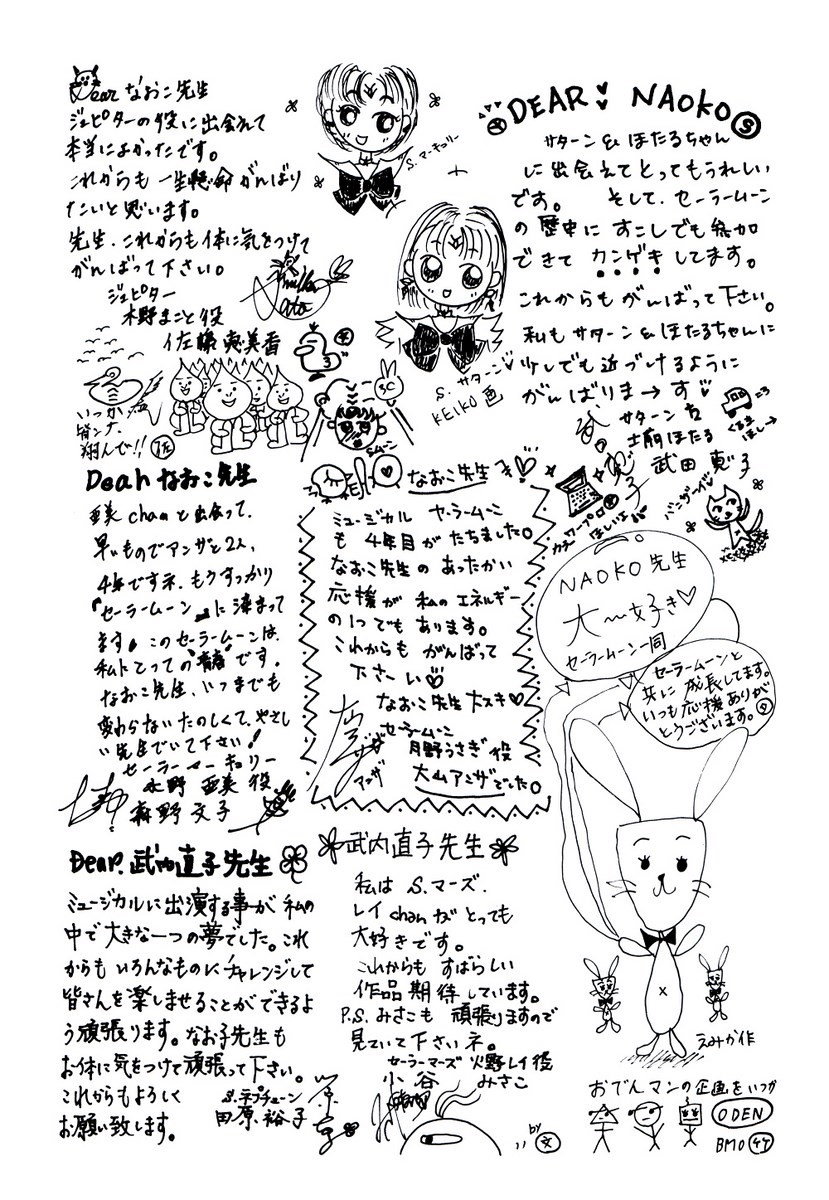 Dear なおこ先生
ジュピターの役に出会えて
本当によかったです。
これからも 一生懸命 がんばり
たいと思います。
先生、これからも体に気をつけて
がんばって下さい。
ジュピター
木野まこと役
佐藤恵美香
いつか
皆ンナ、
翔んで!!
S.マーキュリー
S.サターン
KEIKO画
S.ムーン
DEAR NAOKO
サターン & ほたるちゃん
に出会えてとってもうれしい
です。 そして、セーラームーン
の歴史に すこしでも参加
できて カンゲキ してます。
これからも がんばって下さい。
私も サターン & ほたるちゃんに
少しでも近づけるように
がんばりま→す
サターン
土萠ほたる
武田恵子
くるま
ほし→
ワープロ
ほしいよ
バンザーイ
Dear なおこ先生
亜美chanと出会って、
早いものでアンザと2人、
4年ですネ。もうすっかり
『セーラームーン』に染まって
ます。このセーラームーンは、
私にとっての"青春"です。
なおこ先生、いつまでも
変わらないたのしくて、やさし
い先生でいて下さい!
セーラーマーキュリー
水野 亜美 役
森野 文子
なおこ先生へ
ミュージカル セーラームーン
も 4年目が たちました。
なおこ先生の あったかい
応援が 私の エネルギー
の1つでも あります。
これからも がんばって
下さーい
なおこ先生大スキ
セーラームーン
月野うさぎ 役
アンザ
大山アンザでした。
NAOKO先生
大〜好き
セーラームーン一同
セーラームーンと
共に 成長してます。
いつも応援ありが
とうございます。
Dear. 武内直子先生
ミュージカルに出演する事が 私の
中で大きな一つの夢でした。これ
からも いろんなものにチャレンジして
皆さんを楽しませることができるよ
う頑張ります。なお子先生も
お体に気をつけて頑張って下さい。
これからもよろしく
お願い致します。
S.ネプチューン
田原裕子
武内直子先生
私は S.マーズ.
レイchanが とっても
大好きです。
これからも すばらしい
作品 期待しています。
P.S. みさこも 頑張りますので
見ていて下さいネ。
セーラーマーズ 火野レイ役
小谷 みさこ
by 文
えみか作
おでんマンの企画をいつか
ODEN
BMO